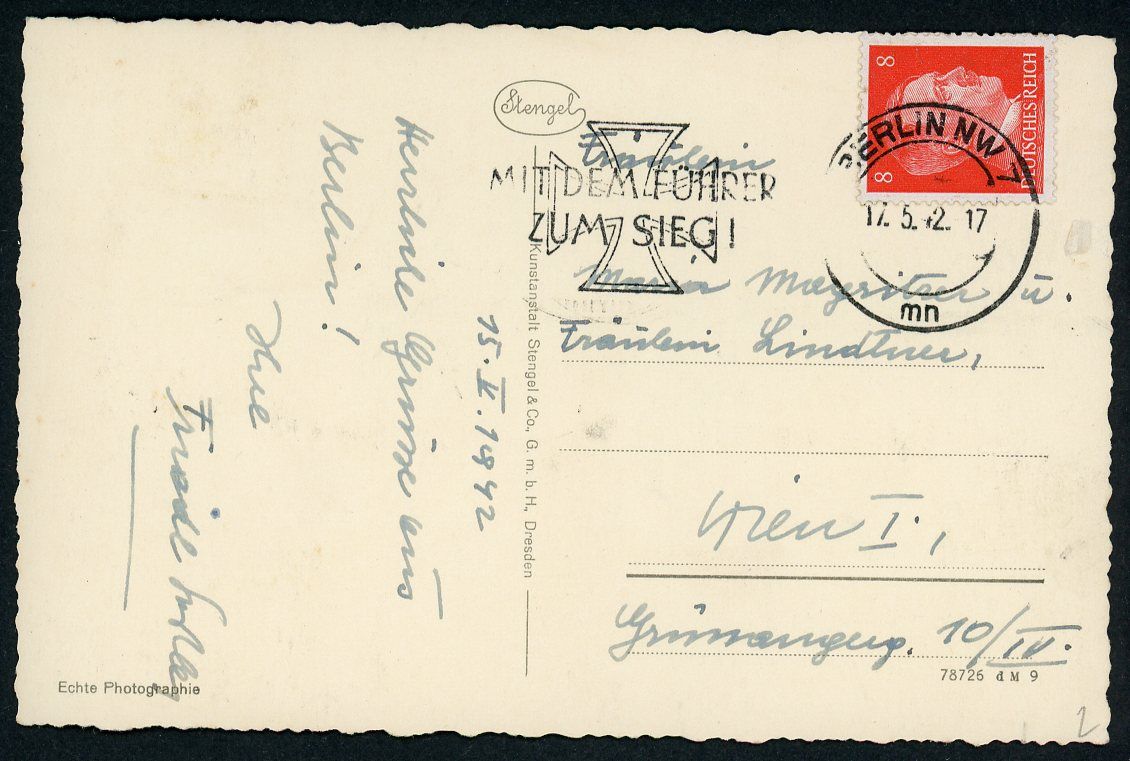 Stengel
MIT DEM FÜHRER
ZUM SIEG!
8 DEUTSCHES REICH 8
BERLIN NW 7
17.5.42.17
mn
Fräulein
Maria Mayritner u.
Fräulein Lindtner,
Wien I.,
Grünangerg. 10/IV.
15.V.1942
Herzliche Grüsse aus
Berlin!
Ihre
Friedl
Kunstanstalt Stengel & Co., G. m. b. H., Dresden
Echte Photographie
78726 d M 9